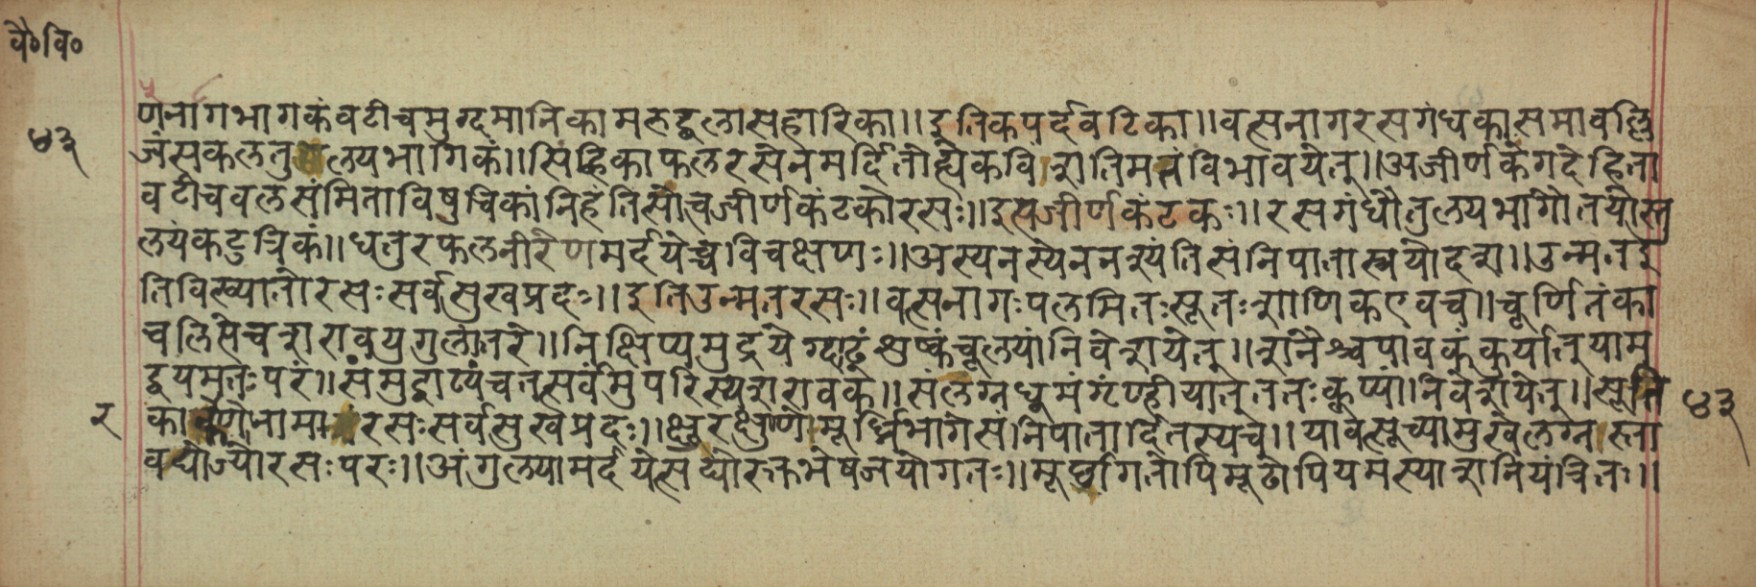 वै०वि०
णनागभागकंवटीचमुग्दमानिकामरुद्धलासहारिका॥इतिकपर्दवटिका॥वत्सनागरसगंधकासमावल्लि
४३
जंसकलतुल्यभागिकं॥सिंहिकाफलरसेनमर्दितोह्येकविंशतिमतंविभावयेत्॥अजीर्णकेगदेहिता
वटीचवलसंमिताविषुचिकांनिहंतिसोचजीर्णकंटकोरसः॥इत्यजीर्णकंटकः॥रसगंधौतुल्यभागौतयोस्तु
ल्यंकटुत्रिकं॥धतुरफलनीरेणमर्दयेच्चविचक्षणः॥अस्यनस्येननश्यंतिसंनिपातास्त्रयोदश॥उन्मतइ
तिविख्यातोरसःसर्वसुखप्रदः॥इतिउन्मतरसः॥वत्सनागःपलमितःसूतःशाणिकएवच॥चूर्णितंका
चलिसेचशरावयुगुलांतरे॥निक्षिप्यमुद्रयेग्दाढंशुष्कंचूल्यांनिवेशयेत्॥शनैश्चपावकंकुर्यात्याम
द्वयमतःपरं॥संमुद्घाट्यंचतत्सर्वमुपरिस्यशरावकं॥संलग्नधूमंगृण्हीयात्ततःकूप्यांनिवेशयेत्॥सूचि
र
काभरणोनामारसःसर्वसुखप्रदः॥क्षुरक्षुण्णेमूर्ध्निभागेसंनिपातार्दितस्यच॥यावत्सूच्यामुखेलग्नस्ता
४३
वद्योज्योरसःपरः॥अंगुल्यामर्दयेत्सद्योरक्तभेषजयोगतः॥मूर्छागतोपिमूढोपियमस्याशनियंत्रितः॥